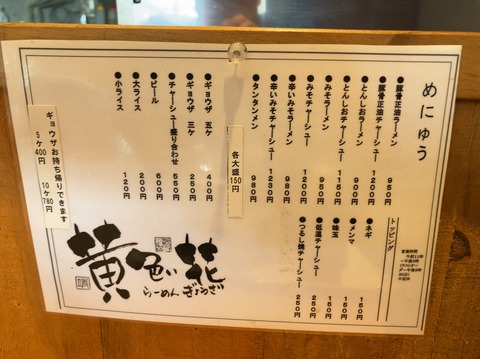 めにゅう
●豚骨正油ラーメン 950円
●豚骨正油チャーシュー 1200円
●とんしおラーメン 900円
●とんしおチャーシュー 1150円
●みそラーメン 950円
●みそチャーシュー 1200円
●辛いみそラーメン 980円
●辛いみそチャーシュー 1230円
●タンタンメン 980円
各大盛 150円
●ギョウザ 五ケ 400円
●ギョウザ 三ケ 250円
●チャーシュー盛り合わせ 550円
●ビール 600円
●大ライス 200円
●小ライス 120円
ギョウザお持ち帰りできます
5ケ400円 10ケ780円
トッピング
●ネギ 150円
●メンマ 150円
●味玉 150円
●低温チャーシュー 250円
●つるし焼チャーシュー 250円
営業時間
午前11時
～午後3時
黄色い花
らーめん ぎょうざ